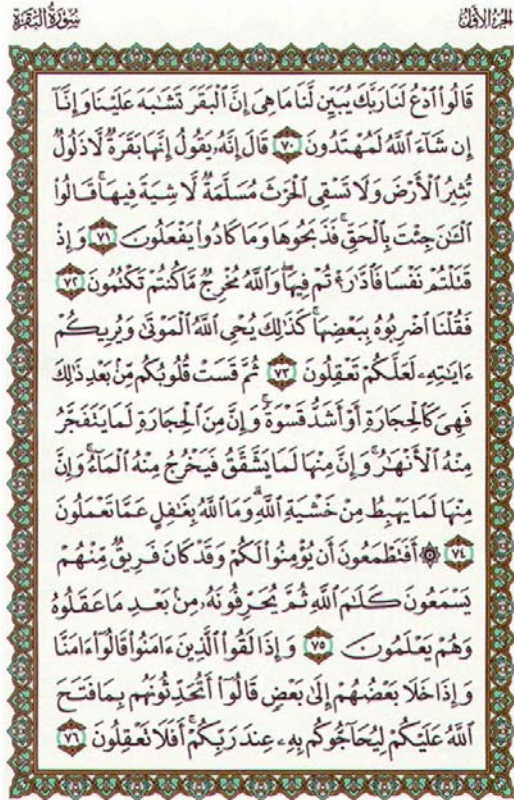 الجزء الأول سورة البقرة
قَالُوا۟ ٱدْعُ لَنَا رَبَّكَ يُبَيِّن لَّنَا مَا هِىَ إِنَّ ٱلْبَقَرَ تَشَـٰبَهَ عَلَيْنَا وَإِنَّآ
إِن شَآءَ ٱللَّهُ لَمُهْتَدُونَ ٧٠ قَالَ إِنَّهُۥ يَقُولُ إِنَّهَا بَقَرَةٌ لَّا ذَلُولٌ
تُثِيرُ ٱلْأَرْضَ وَلَا تَسْقِى ٱلْحَرْثَ مُسَلَّمَةٌ لَّا شِيَةَ فِيهَا ۚ قَالُوا۟
ٱلْـَٔـٰنَ جِئْتَ بِٱلْحَقِّ ۚ فَذَبَحُوهَا وَمَا كَادُوا۟ يَفْعَلُونَ ٧١ وَإِذْ
قَتَلْتُمْ نَفْسًا فَٱدَّٰرَْٰٔتُمْ فِيهَا ۖ وَٱللَّهُ مُخْرِجٌ مَّا كُنتُمْ تَكْتُمُونَ ٧٢
فَقُلْنَا ٱضْرِبُوهُ بِبَعْضِهَا ۚ كَذَٰلِكَ يُحْىِ ٱللَّهُ ٱلْمَوْتَىٰ وَيُرِيكُمْ
ءَايَـٰتِهِۦ لَعَلَّكُمْ تَعْقِلُونَ ٧٣ ثُمَّ قَسَتْ قُلُوبُكُم مِّنۢ بَعْدِ ذَٰلِكَ
فَهِىَ كَٱلْحِجَارَةِ أَوْ أَشَدُّ قَسْوَةً ۚ وَإِنَّ مِنَ ٱلْحِجَارَةِ لَمَا يَتَفَجَّرُ
مِنْهُ ٱلْأَنْهَـٰرُ ۚ وَإِنَّ مِنْهَا لَمَا يَشَّقَّقُ فَيَخْرُجُ مِنْهُ ٱلْمَآءُ ۚ وَإِنَّ
مِنْهَا لَمَا يَهْبِطُ مِنْ خَشْيَةِ ٱللَّهِ ۗ وَمَا ٱللَّهُ بِغَـٰفِلٍ عَمَّا تَعْمَلُونَ
٧٤ ۞ أَفَتَطْمَعُونَ أَن يُؤْمِنُوا۟ لَكُمْ وَقَدْ كَانَ فَرِيقٌ مِّنْهُمْ
يَسْمَعُونَ كَلَـٰمَ ٱللَّهِ ثُمَّ يُحَرِّفُونَهُۥ مِنۢ بَعْدِ مَا عَقَلُوهُ
وَهُمْ يَعْلَمُونَ ٧٥ وَإِذَا لَقُوا۟ ٱلَّذِينَ ءَامَنُوا۟ قَالُوٓا۟ ءَامَنَّا
وَإِذَا خَلَا بَعْضُهُمْ إِلَىٰ بَعْضٍ قَالُوٓا۟ أَتُحَدِّثُونَهُم بِمَا فَتَحَ
ٱللَّهُ عَلَيْكُمْ لِيُحَآجُّوكُم بِهِۦ عِندَ رَبِّكُمْ ۚ أَفَلَا تَعْقِلُونَ ٧٦